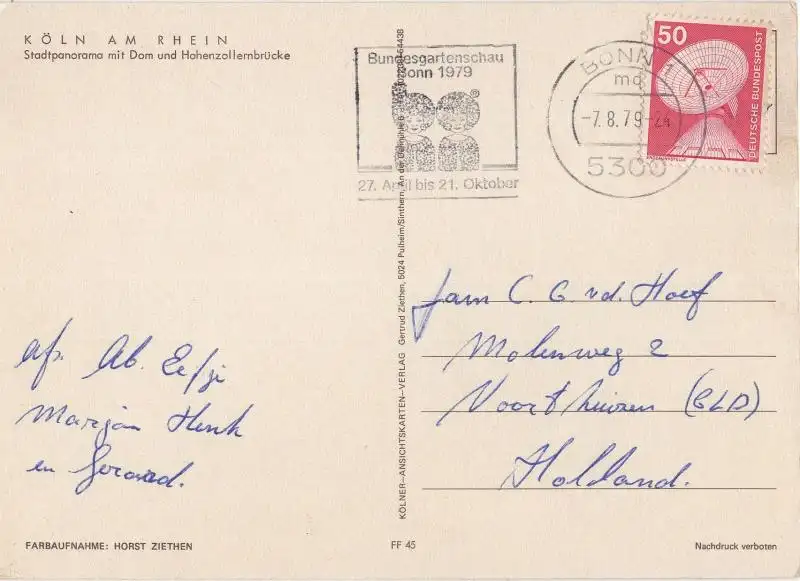 KÖLN AM RHEIN
Stadtpanorama mit Dom und Hohenzollernbrücke
Bundesgartenschau
Bonn 1979
27. April bis 21. Oktober
BONN 1
mc
-7.8.79-
5300
50
DEUTSCHE BUNDESPOST
ERDFUNKSTELLE
KÖLNER-ANSICHTSKARTEN-VERLAG Gertrud Ziethen, 5024 Pulheim/Sinthern, An der
Fam C. G. v.d. Hoef
Molenweg 2
Voorthuizen (GLD)
Holland.
afz. Ab. Eefje
Marjan Henk
en Gerard.
FARBAUFNAHME: HORST ZIETHEN
FF 45
Nachdruck verboten